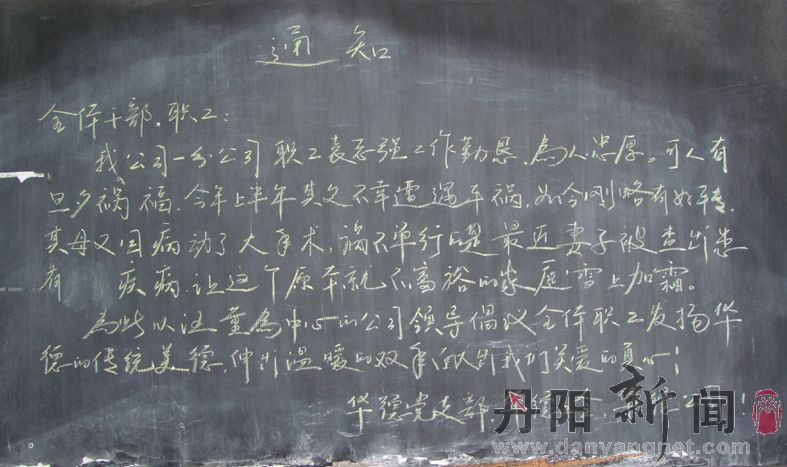 通知
全体干部、职工：
我公司一分公司职工袁志强工作勤恳，为人忠厚。可人有
旦夕祸福，今年上半年其父不幸遭遇车祸，如今刚略有好转，
其母又因病动了大手术，祸不单行的是最近妻子被查出患
有 疾病，让这个原本就不富裕的家庭雪上加霜。
为此以汪董为中心的公司领导倡议全体职工发扬华
德的传统美德，伸出温暖的双手献出我们关爱的真心！
华德党支部
丹阳新闻网
www.danyangnet.com